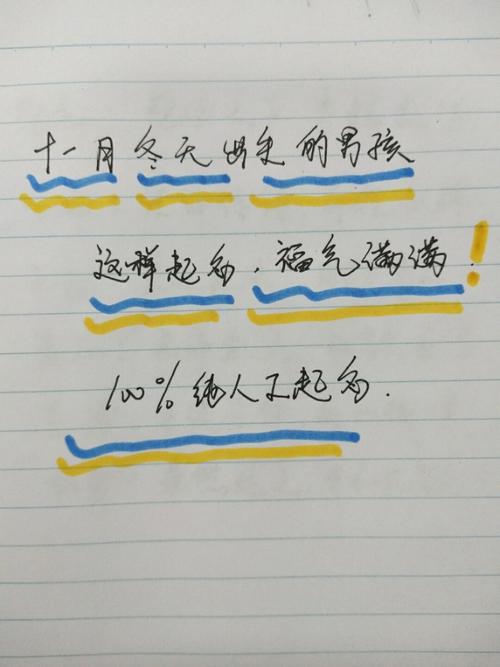 十一月冬天出生的男孩
这样起名，福气满满！
100%纯人工起名.